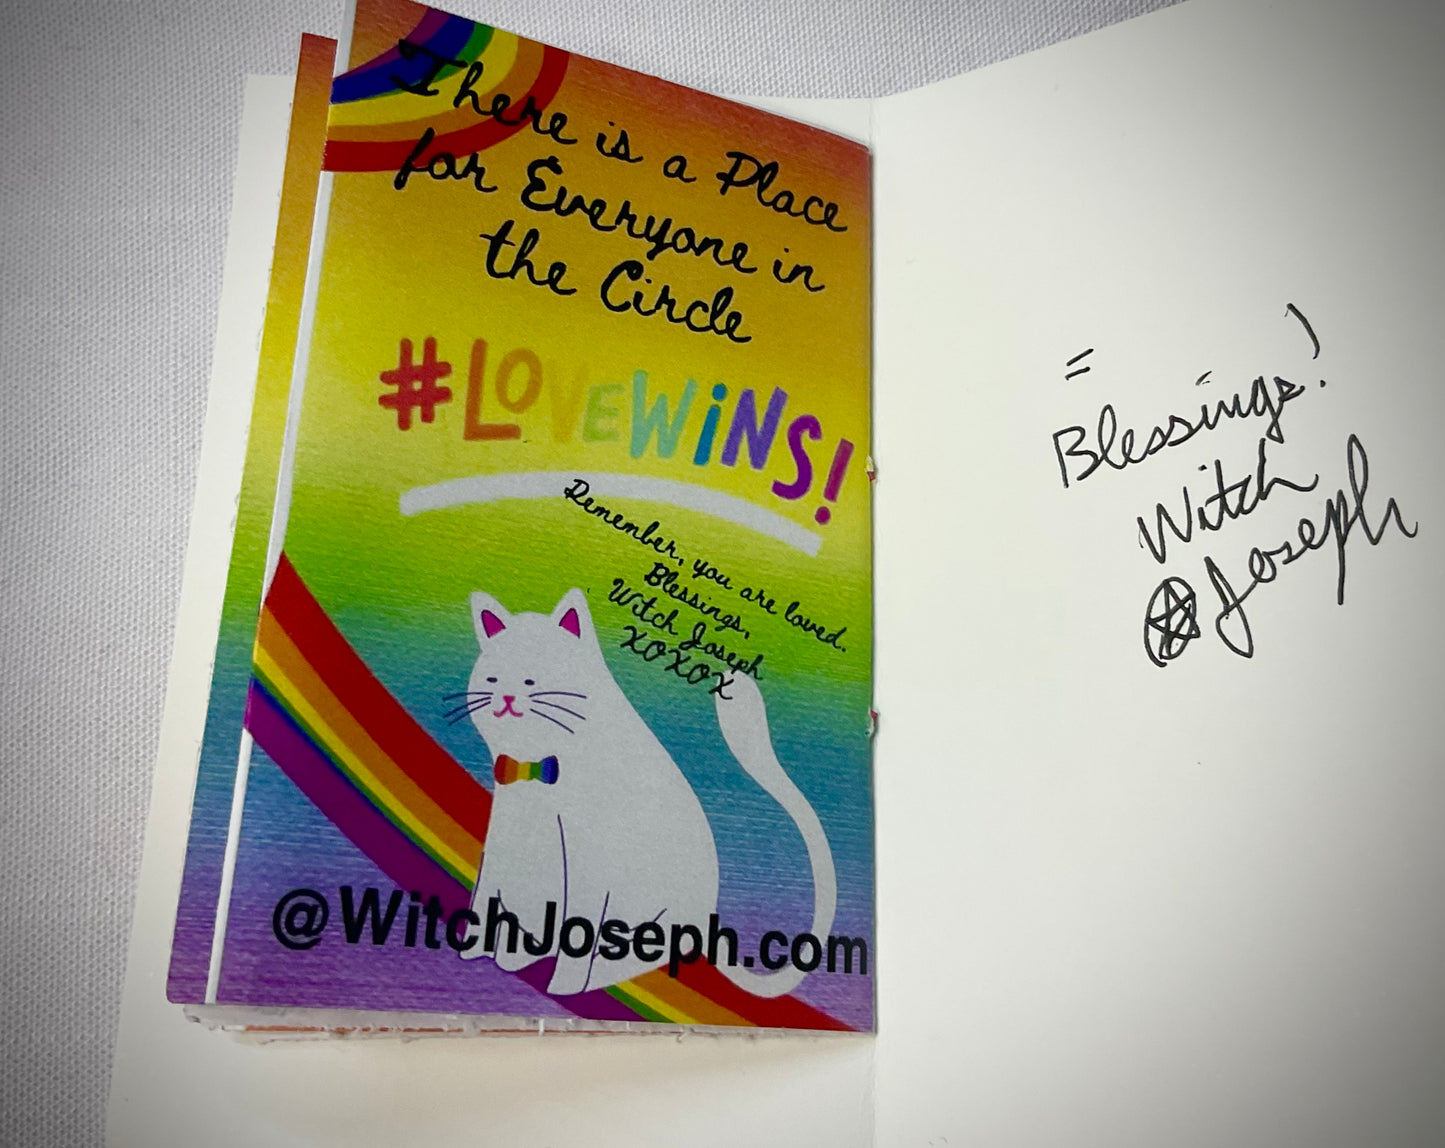 There is a Place
for Everyone in
the Circle
#LOVEWiNS!
Remember, you are loved.
Blessings,
Witch Joseph
XOXOX
@WitchJoseph.com
=
Blessings!
Witch
Joseph